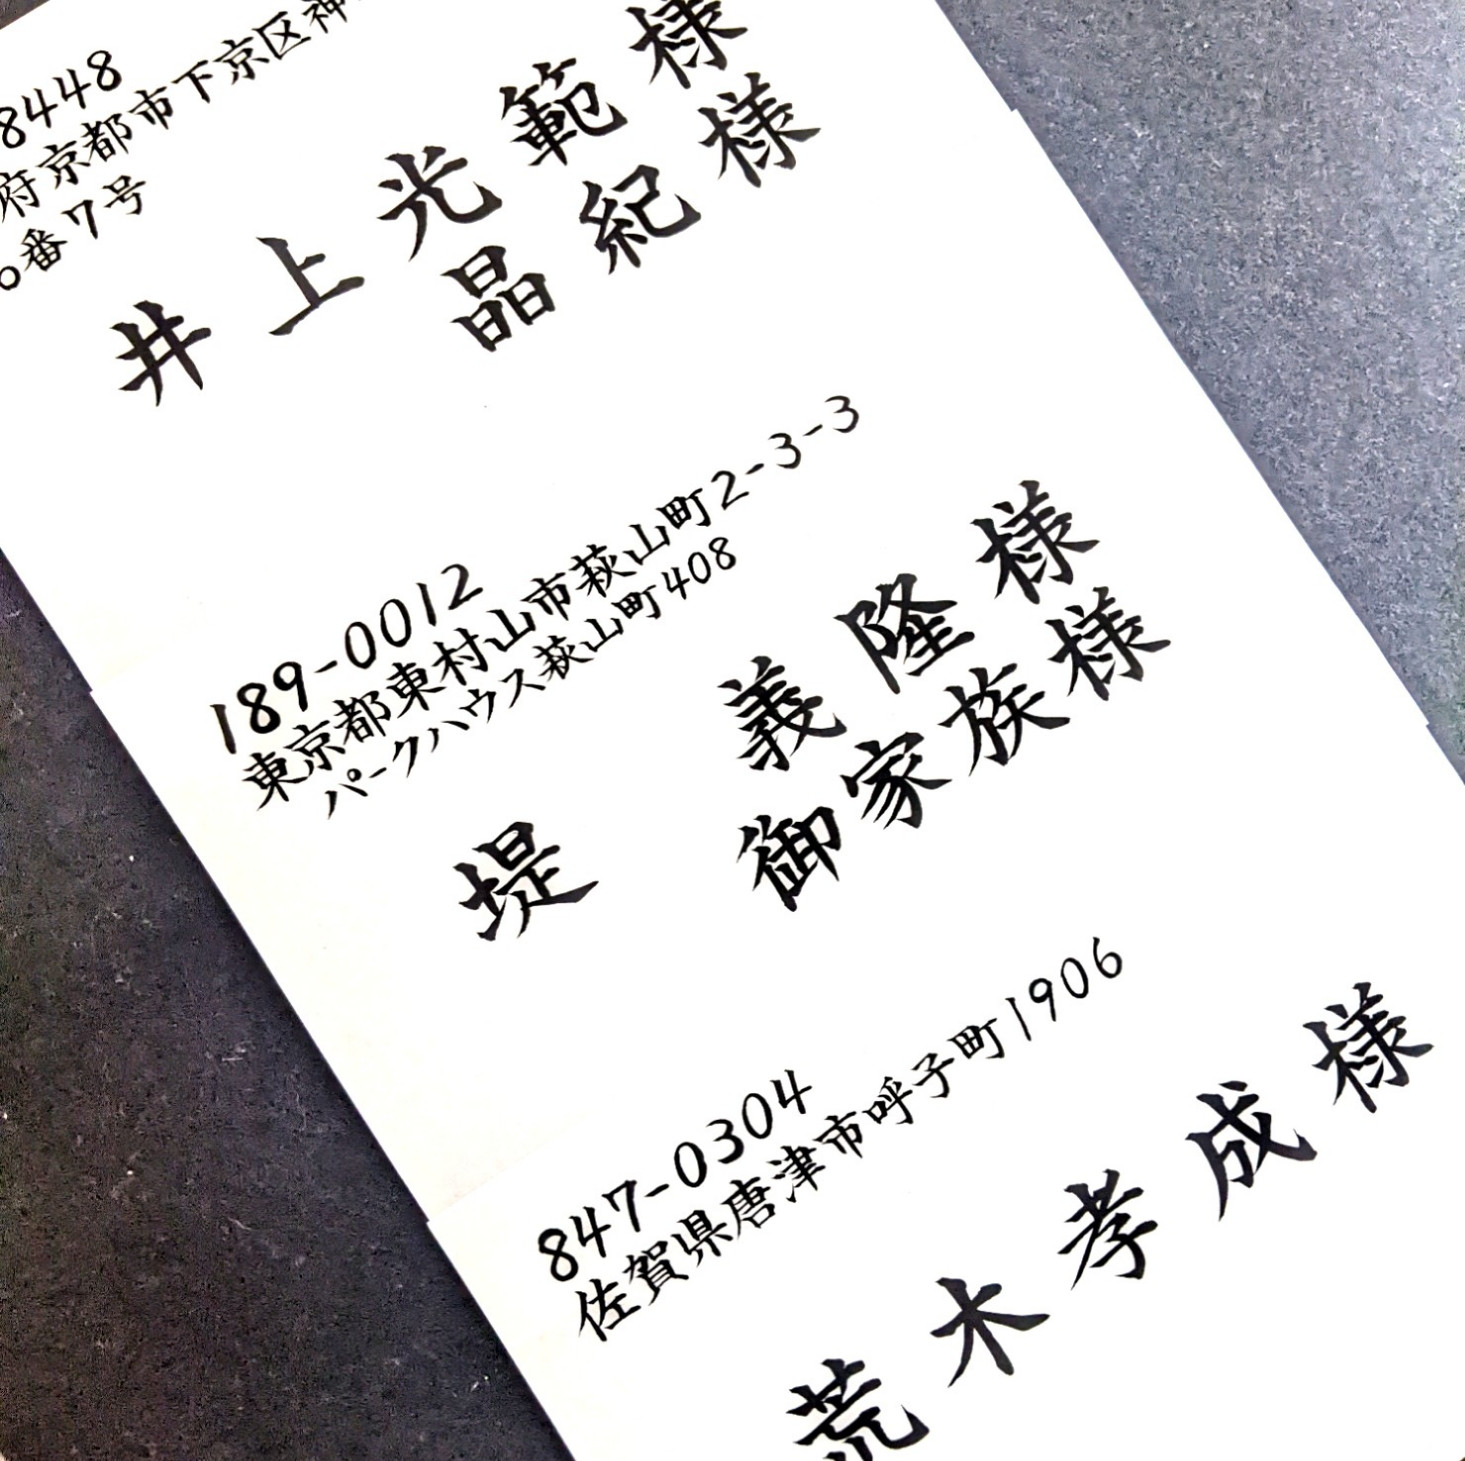 8448
府京都市下京区神
0番7号
井上光範様
晶紀様
189-0012
東京都東村山市萩山町2-3-3
パークハウス萩山町408
堤 義隆様
御家族様
847-0304
佐賀県唐津市呼子町1906
荒木孝成様